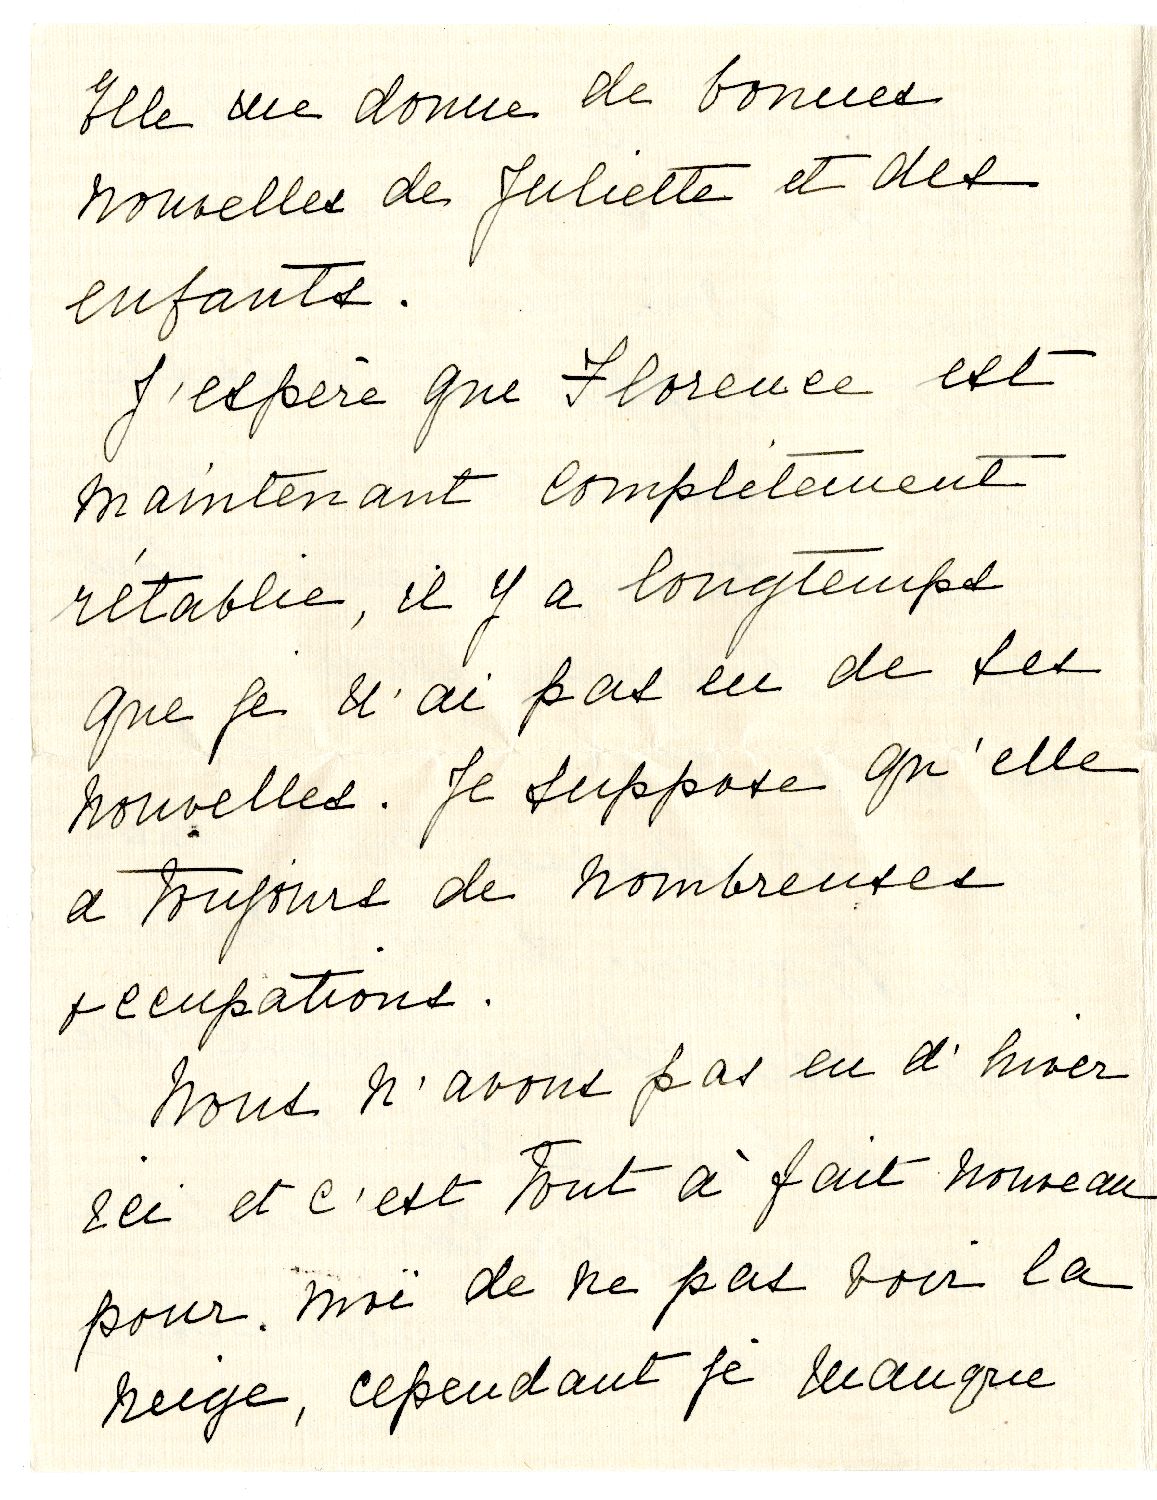 Elle me donne de bonnes
nouvelles de Juliette et des
enfants.
J'espère que Florence est
maintenant complètement
rétablie, il y a longtemps
que je n'ai pas eu de ses
nouvelles. Je suppose qu'elle
a toujours de nombreuses
occupations.
Nous n'avons pas eu d'hiver
ici et c'est tout à fait nouveau
pour moi de ne pas voir la
neige, cependant je manque